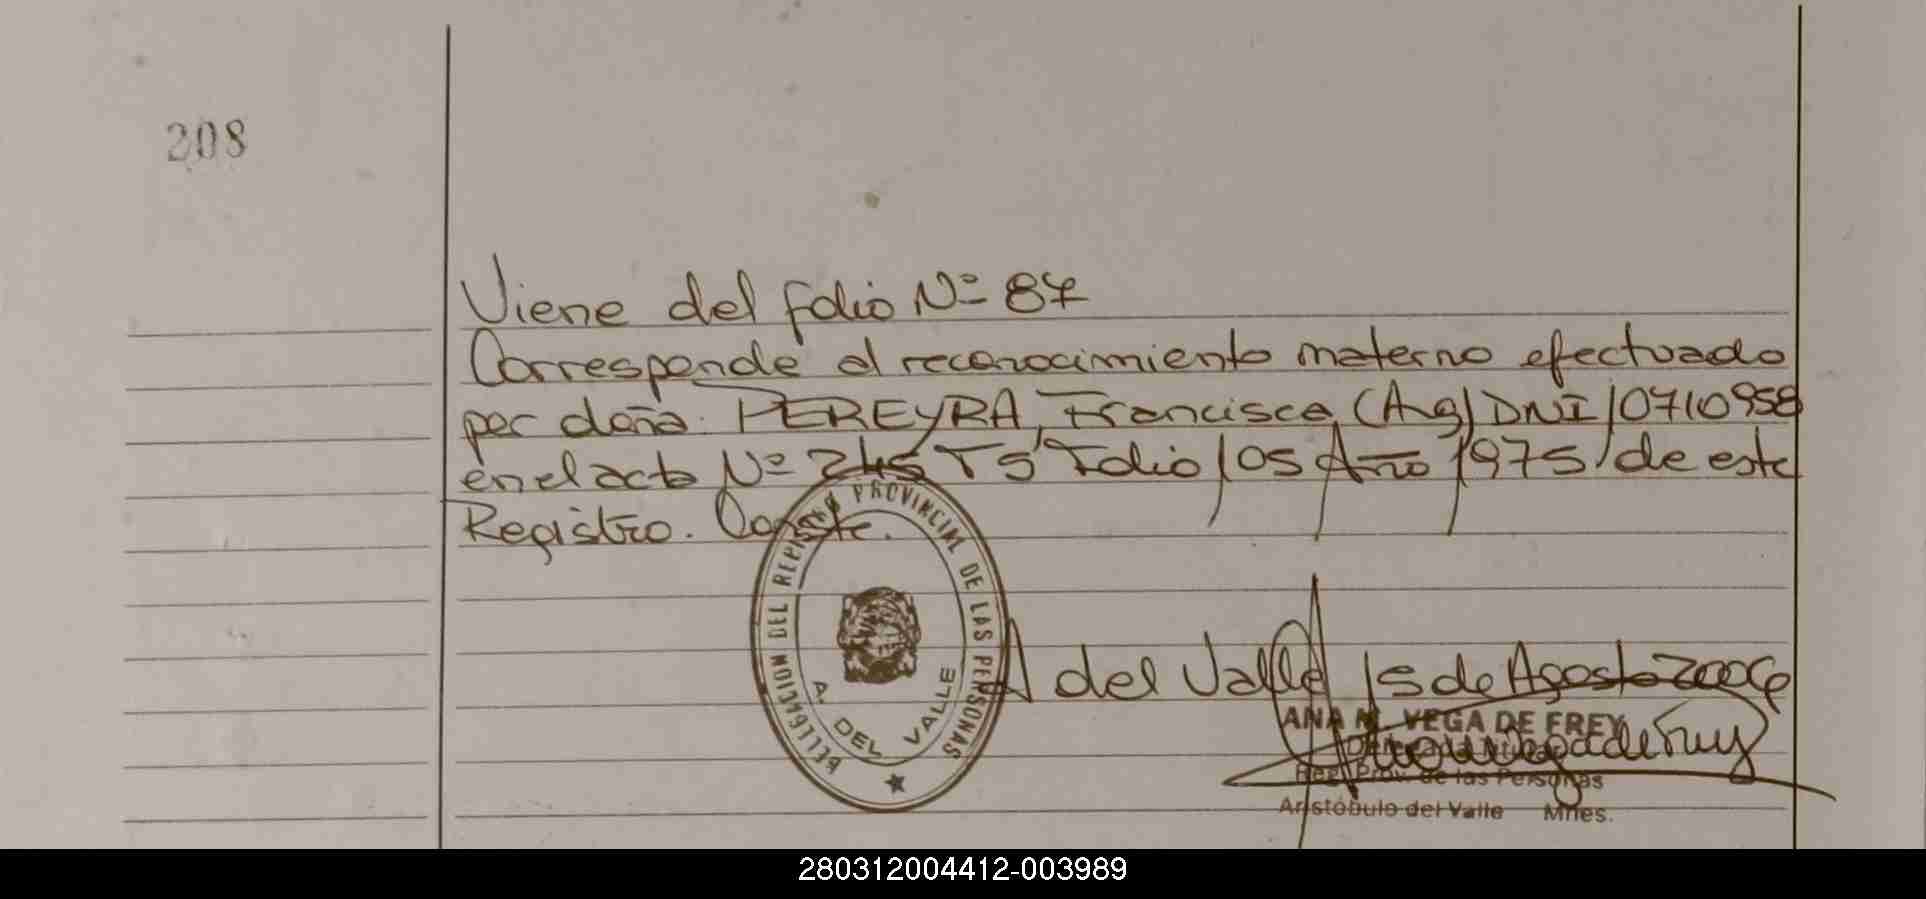 208
Viene del folio Nº 87
Corresponde al reconocimiento materno efectuado
por doña: PEREYRA, Francisca (Arg) DNI 10710958
en el acta Nº 245 T 5 Folio 105 Año 1975 de este
Registro. Conste.
DELEGACION DEL REGISTRO PROVINCIAL DE LAS PERSONAS
A. DEL VALLE
A del Valle 15 de Agosto 2006
ANA M. VEGA DE FREY
Reg. Prov. de las Personas
Aristóbulo del Valle Mnes.
280312004412-003989